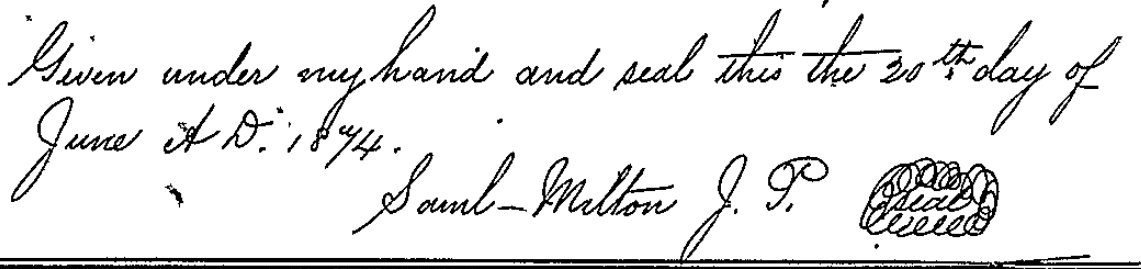 Given under my hand and seal this the 20th day of
June A D. 1874.
Saml - Milton J. P. seal